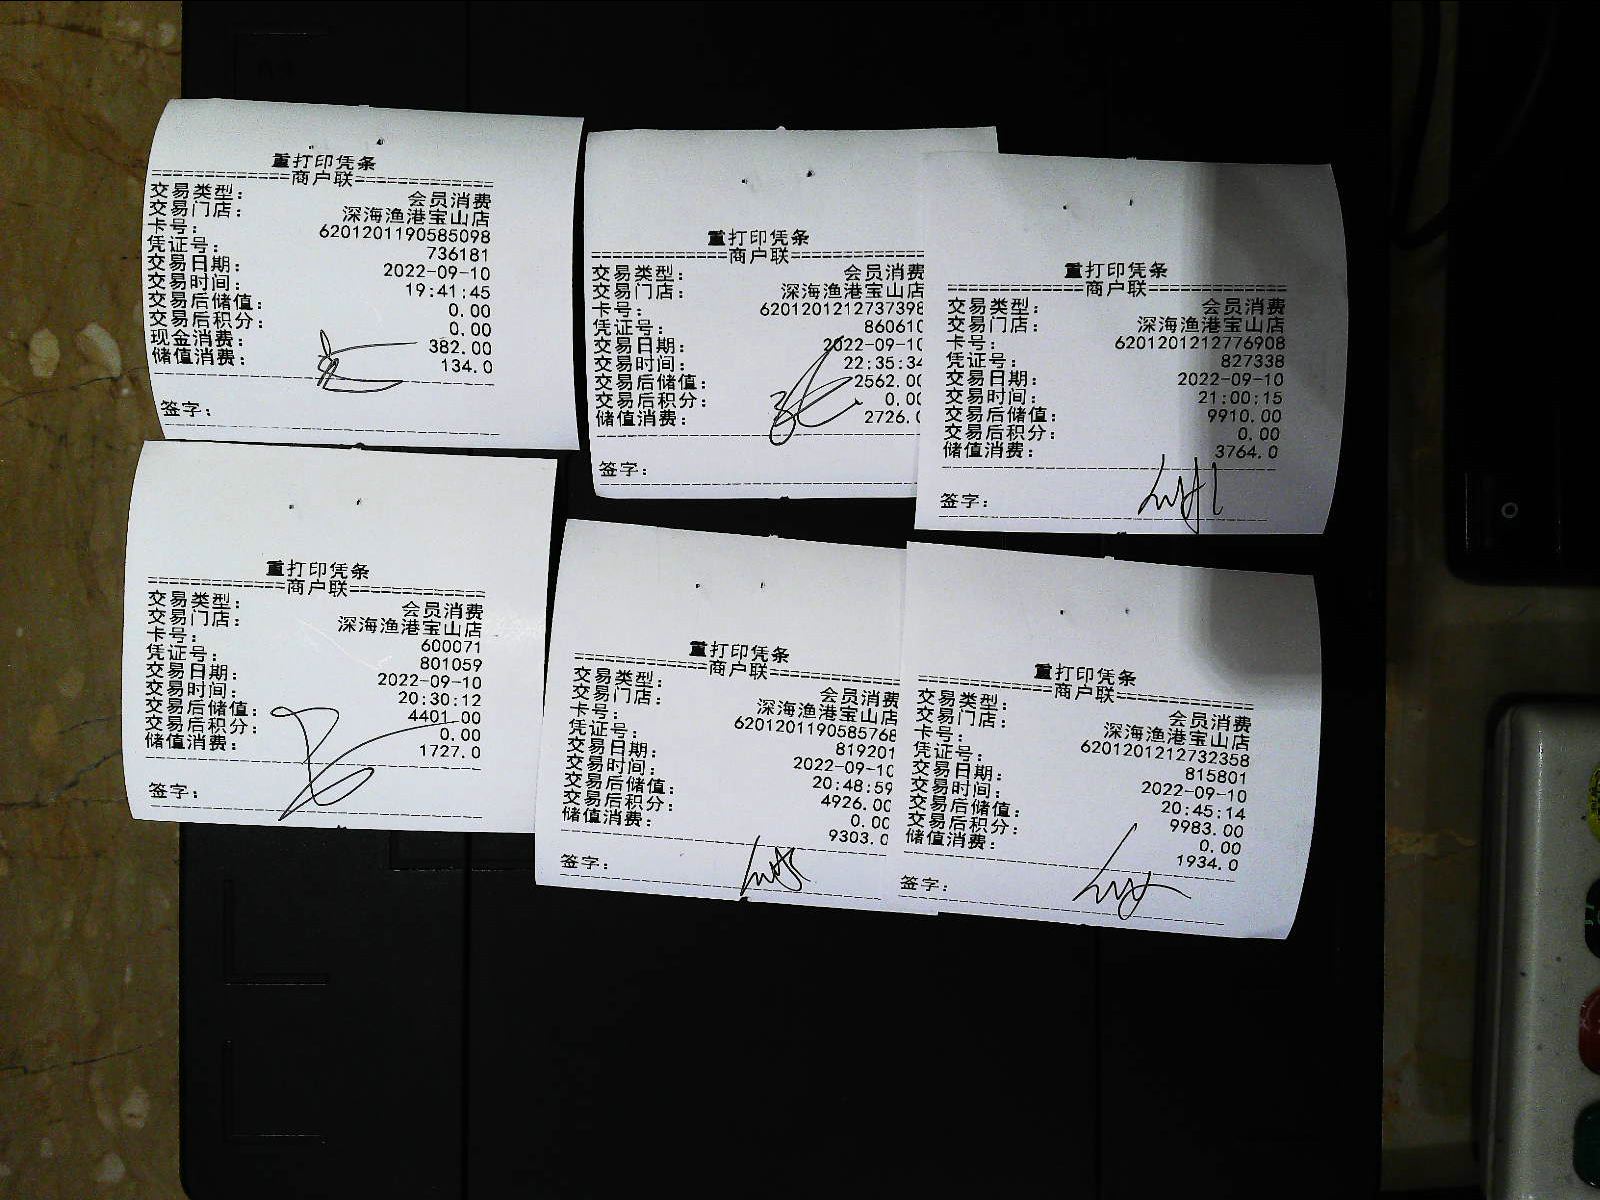 重打印凭条
==============商户联==============
交易类型： 会员消费
交易门店： 深海渔港宝山店
卡号： 6201201190585098
凭证号： 736181
交易日期： 2022-09-10
交易时间： 19:41:45
交易后储值： 0.00
交易后积分： 0.00
现金消费： 382.00
储值消费： 134.0
签字：
重打印凭条
==============商户联==============
交易类型： 会员消费
交易门店： 深海渔港宝山店
卡号： 6201201212737398
凭证号： 860610
交易日期： 2022-09-10
交易时间： 22:35:34
交易后储值： 2562.00
交易后积分： 0.00
储值消费： 2726.0
签字：
重打印凭条
==============商户联==============
交易类型： 会员消费
交易门店： 深海渔港宝山店
卡号： 6201201212776908
凭证号： 827338
交易日期： 2022-09-10
交易时间： 21:00:15
交易后储值： 9910.00
交易后积分： 0.00
储值消费： 3764.0
签字：
重打印凭条
==============商户联==============
交易类型： 会员消费
交易门店： 深海渔港宝山店
卡号： 600071
凭证号： 801059
交易日期： 2022-09-10
交易时间： 20:30:12
交易后储值： 4401.00
交易后积分： 0.00
储值消费： 1727.0
签字：
重打印凭条
==============商户联==============
交易类型： 会员消费
交易门店： 深海渔港宝山店
卡号： 6201201190585768
凭证号： 819201
交易日期： 2022-09-10
交易时间： 20:48:59
交易后储值： 4926.00
交易后积分： 0.00
储值消费： 9303.0
签字：
重打印凭条
==============商户联==============
交易类型： 会员消费
交易门店： 深海渔港宝山店
卡号： 6201201212732358
凭证号： 815801
交易日期： 2022-09-10
交易时间： 20:45:14
交易后储值： 9983.00
交易后积分： 0.00
储值消费： 1934.0
签字：